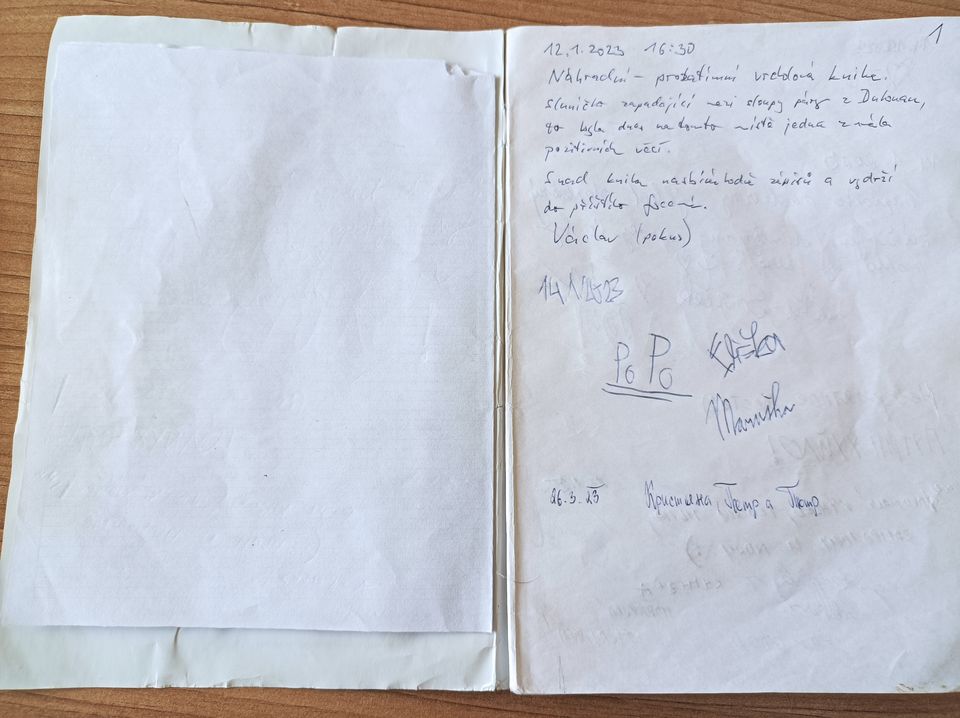 1
12.1.2023 16:30
Náhradní - prozatimní vrcholová kniha.
Sluníčko zapadající mezi sloupy páry z Dukovan,
to byla dnes na tomto místě jedna z mála
pozitivních věcí.
Snad kniha nasbírá hodně zápisů a vydrží
do příštího focení.
Václav (pokus)
14.1.2023
PoPo Eliška
Maruška
26.3.23 Кристына, Петр а Петр